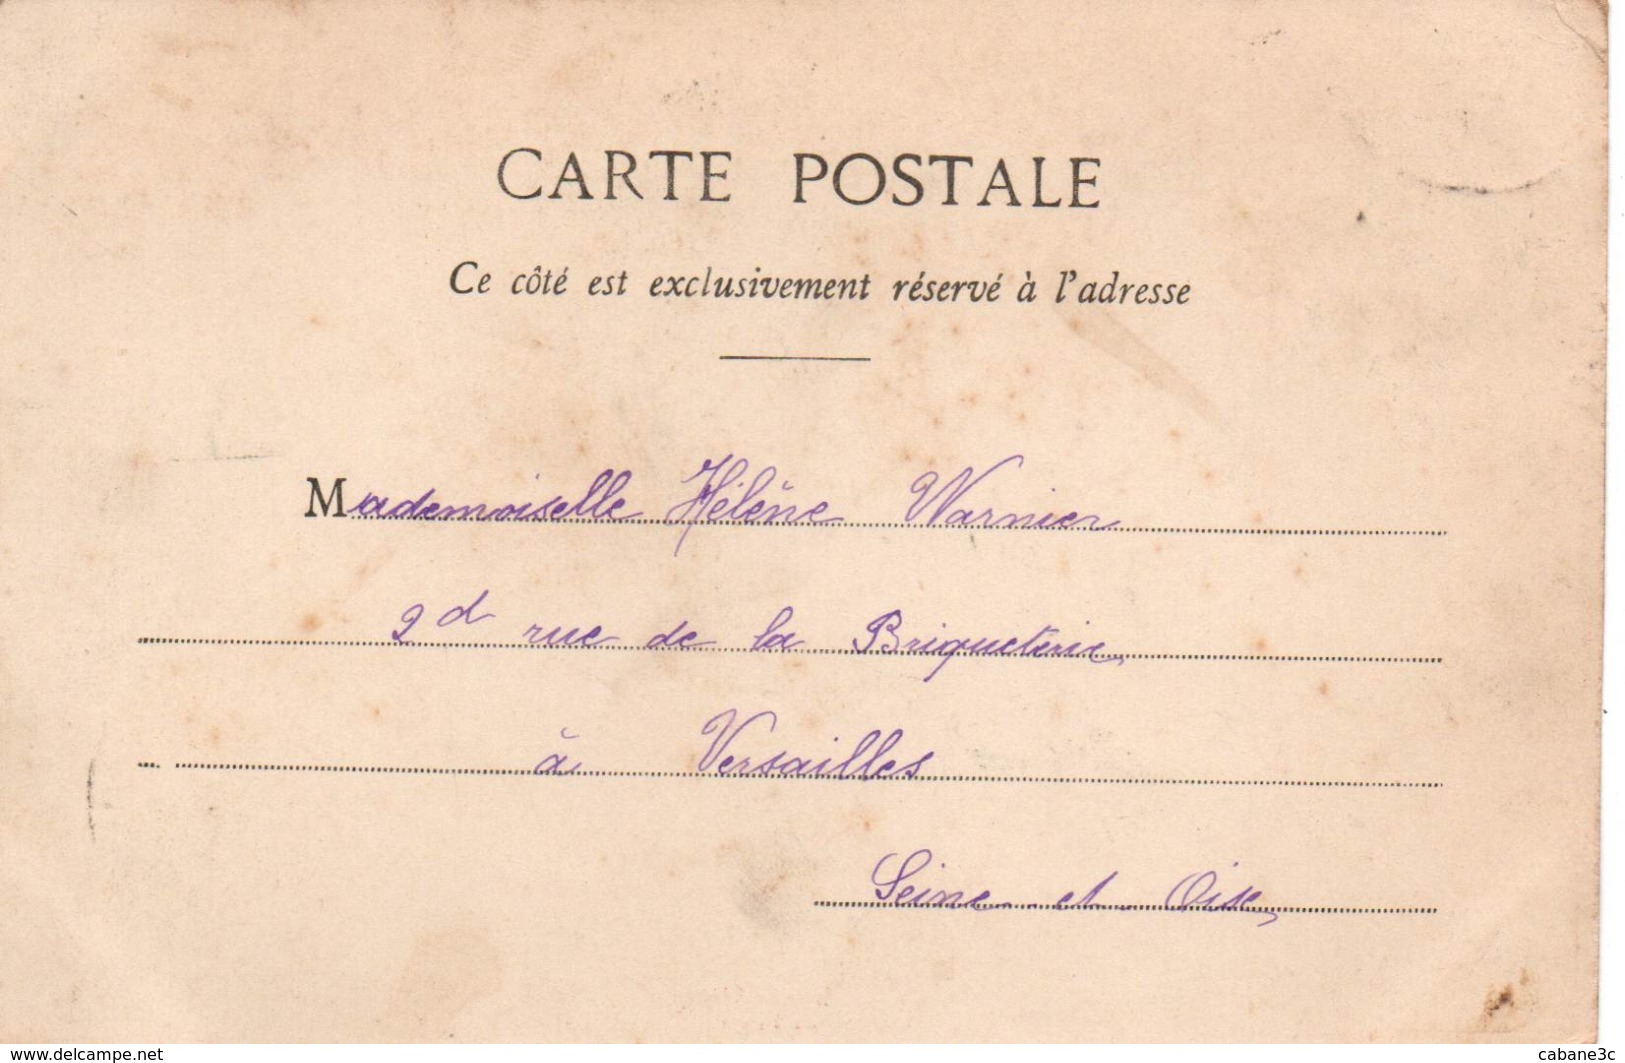 CARTE POSTALE
Ce côté est exclusivement réservé à l'adresse
Mademoiselle Hélène Warnier
2d rue de la Briqueterie
à Versailles
Seine-et-Oise
www.delcampe.net
cabane3c